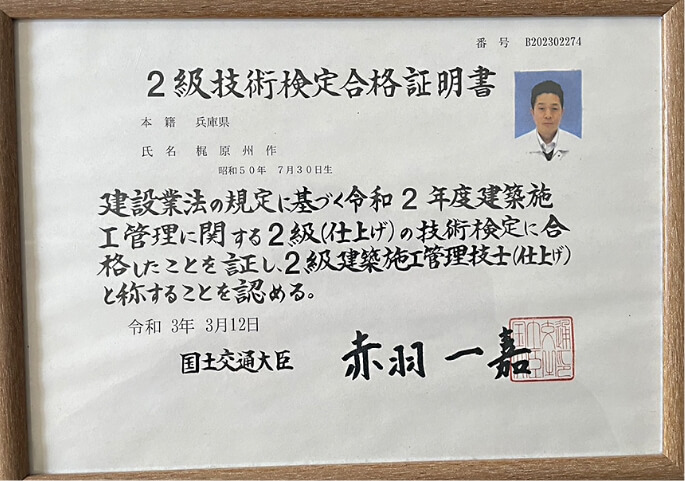 番 号 B202302274
2級技術検定合格証明書
本 籍 兵庫県
氏 名 梶 原 州 作
昭和50年 7月30日生
建設業法の規定に基づく令和2年度建築施
工管理に関する2級(仕上げ)の技術検定に合
格したことを証し、2級建築施工管理技士(仕上げ)
と称することを認める。
令和 3年 3月12日
国土交通大臣 赤羽 一嘉